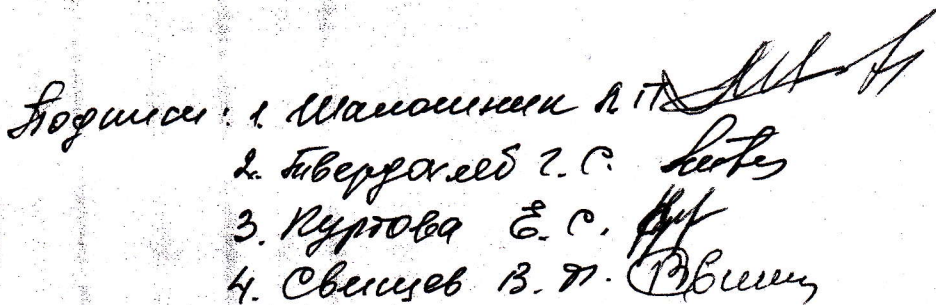 Подписи: 1. Шапошник А. П.
2. Твердохлеб Г. С.
3. Куртова Е. С.
4. Свищев В. П.